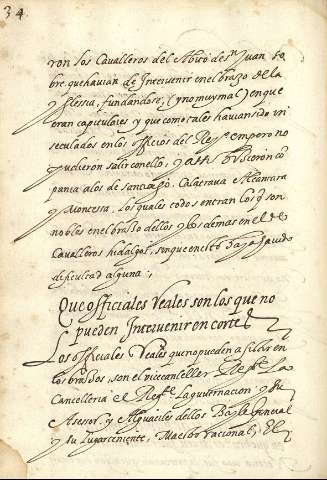 34.
ron los Cavalleros del Abito de sn Juan so
bre que havian de Intervenir en el brazo de la
yglessia, fundandose, (y no muy mal) en que
eran capitulares y que como tales havian sido in
seculados en los officios del Reyº. empero no
pudieron salir con ello, y assi hizieron com
pania a los de sanctiago. Calatrava Alcantara
y Moncessa, los quales todos entran los q son
nobles en el brasso dellos y los demas en el de
Cavalleros hidalgos, sin que en esto haya havido
dificultad alguna.,
Que officiales Reales son los que no
pueden Intervenir en cortes
Los officiales Reales que no pueden assistir en
los brassos, son el vicecanseller Regte. La
Cancelleria el Regte. La governacion y su
Asesor, y Alguaciles dellos Bayle General
y su lugarteniente, Maestro racional, El